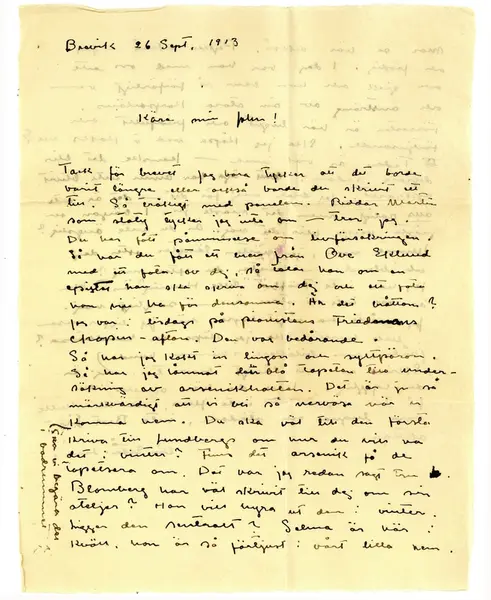 Brevik 26 Sept. 1913
Kära min John!
Tack för brevet jag bara tycker att det borde
varit längre eller också borde du skrivit ett
till. Så tråkigt med panelen. Riddar Martin
som staty tycker jag inte om — tror jag.
Du har fått påminnelse om livförsäkringen.
Så har du fått ett brev från Ove Eklund
med ett foto av dej, så talar han om en
han ska skriva om dej och ett foto
han vill ha för densamma. Är det bråttom?
Jag var i tisdags på pianisten Friedmans
Chopin-afton. Den var bedårande.
Så har jag kokt in lingon och syltpäron.
Så har jag lämnat den blå tapeten till under-
sökning av arsenikhalten. Det är ju så
märkvärdigt att vi bli så nervösa när vi
komma hem. Du ska väl till den första
skriva till Lundbergs om hur du vill ha
det i vinter? Finns det arsenik få de
tapetsera om. Det har jag redan sagt till
Blomberg har väl skrivit till dej om sin
ateljé? Han vill hyra ut den i vinter.
Ligger den centralt? Selma är här i
kväll, hon är så förtjust i vårt lilla hem.
Ska vi begära dusch
i badrummet?